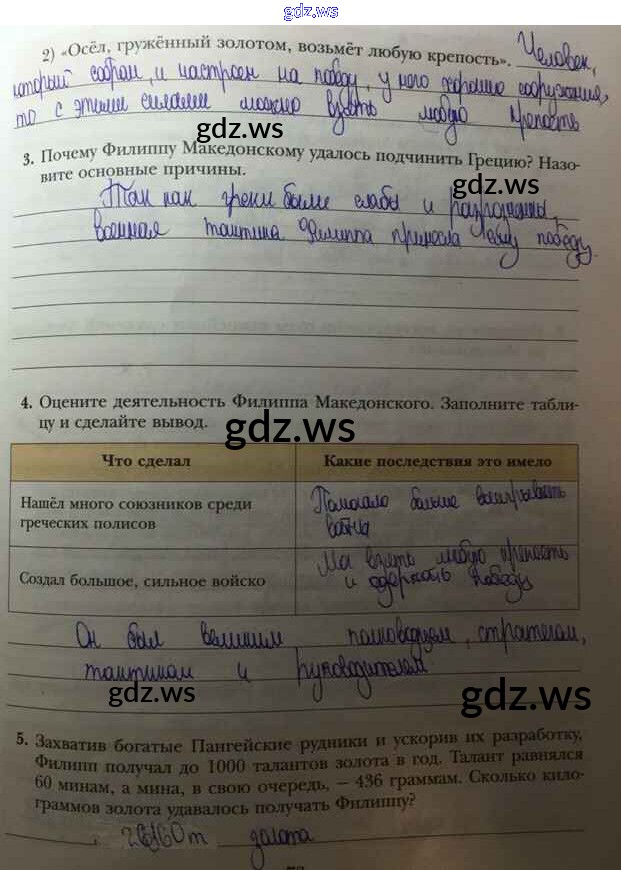 gdz.ws
2) «Осёл, гружённый золотом, возьмёт любую крепость». Человек,
который собран, и настроен на победу, у него хорошие сооружения,
то с этими силами можно взять любую крепость
gdz.ws
3. Почему Филиппу Македонскому удалось подчинить Грецию? Назо-
вите основные причины.
gdz.ws
Так как греки были слабы и разрознены,
военная тактика Филиппа принесла ему победу.
4. Оцените деятельность Филиппа Македонского. Заполните табли-
цу и сделайте вывод.
gdz.ws
Что сделал
Какие последствия это имело
Нашёл много союзников среди
греческих полисов
Помогало больше выигрывать
войны
Создал большое, сильное войско
Мог взять любую крепость
и одержать победу
Он был великим полководцем, стратегом,
тактиком и руководителем.
gdz.ws
gdz.ws
5. Захватив богатые Пангейские рудники и ускорив их разработку,
Филипп получал до 1000 талантов золота в год. Талант равнялся
60 минам, а мина, в свою очередь, – 436 граммам. Сколько кило-
граммов золота удавалось получать Филиппу?
золота
gdz.ws